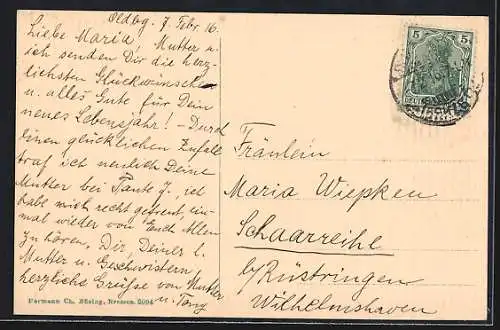 Oldbg. 7. Febr. 16.
Liebe Maria! Mutter u.
ich senden Dir die herz-
lichsten Glückwünsche
u. alles Gute für Dein
neues Lebensjahr! – Durch
einen glücklichen Zufall
traf ich neulich Deine
Mutter bei Tante J., ich
habe mich recht gefreut, ein-
mal wieder von Euch Allen
zu hören. Dir, Deiner l.
Mutter u. Geschwistern
herzliche Grüße von Mutter
u. Tony
Hermann Ch. Büsing, Bremen.
5
5
Fräulein
Maria Wiepken
Schaarreihe
b/ Rüstringen
Wilhelmshaven